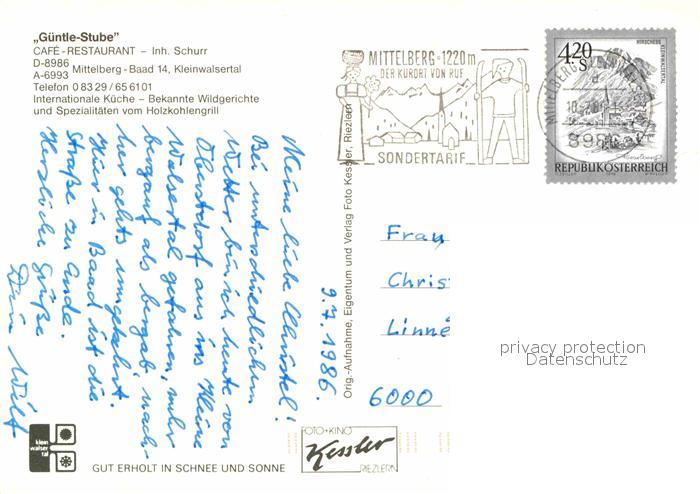 „Güntle-Stube"
CAFÉ-RESTAURANT – Inh. Schurr
D-8986
A-6993 Mittelberg-Baad 14, Kleinwalsertal
Telefon 0 83 29 / 65 61 01
Internationale Küche – Bekannte Wildgerichte
und Spezialitäten vom Holzkohlengrill
9.7.1986.
Meine liebe Christel!
Bei unterschiedlichem
Wetter bin ich heute von
Oberstdorf aus ins Kleine
Walsertal gefahren, mehr
bergauf als bergab, nach-
her gehts umgekehrt.
Hier in Baad ist die
Straße zu Ende.
Herzliche Grüße
Dein Wilf
Orig.-Aufnahme, Eigentum und Verlag Foto Kessler, Riezlern
MITTELBERG 1220m
DER KURORT VON RUF
SONDERTARIF
MITTELBERG
8986
4.20
S
HIRSCHEGG
KLEINWALSERTAL
REPUBLIK ÖSTERREICH
Frau
Chris
Linné
6000
privacy protection
Datenschutz
klein
walser
tal
GUT ERHOLT IN SCHNEE UND SONNE
FOTO+KINO
Kessler
RIEZLERN